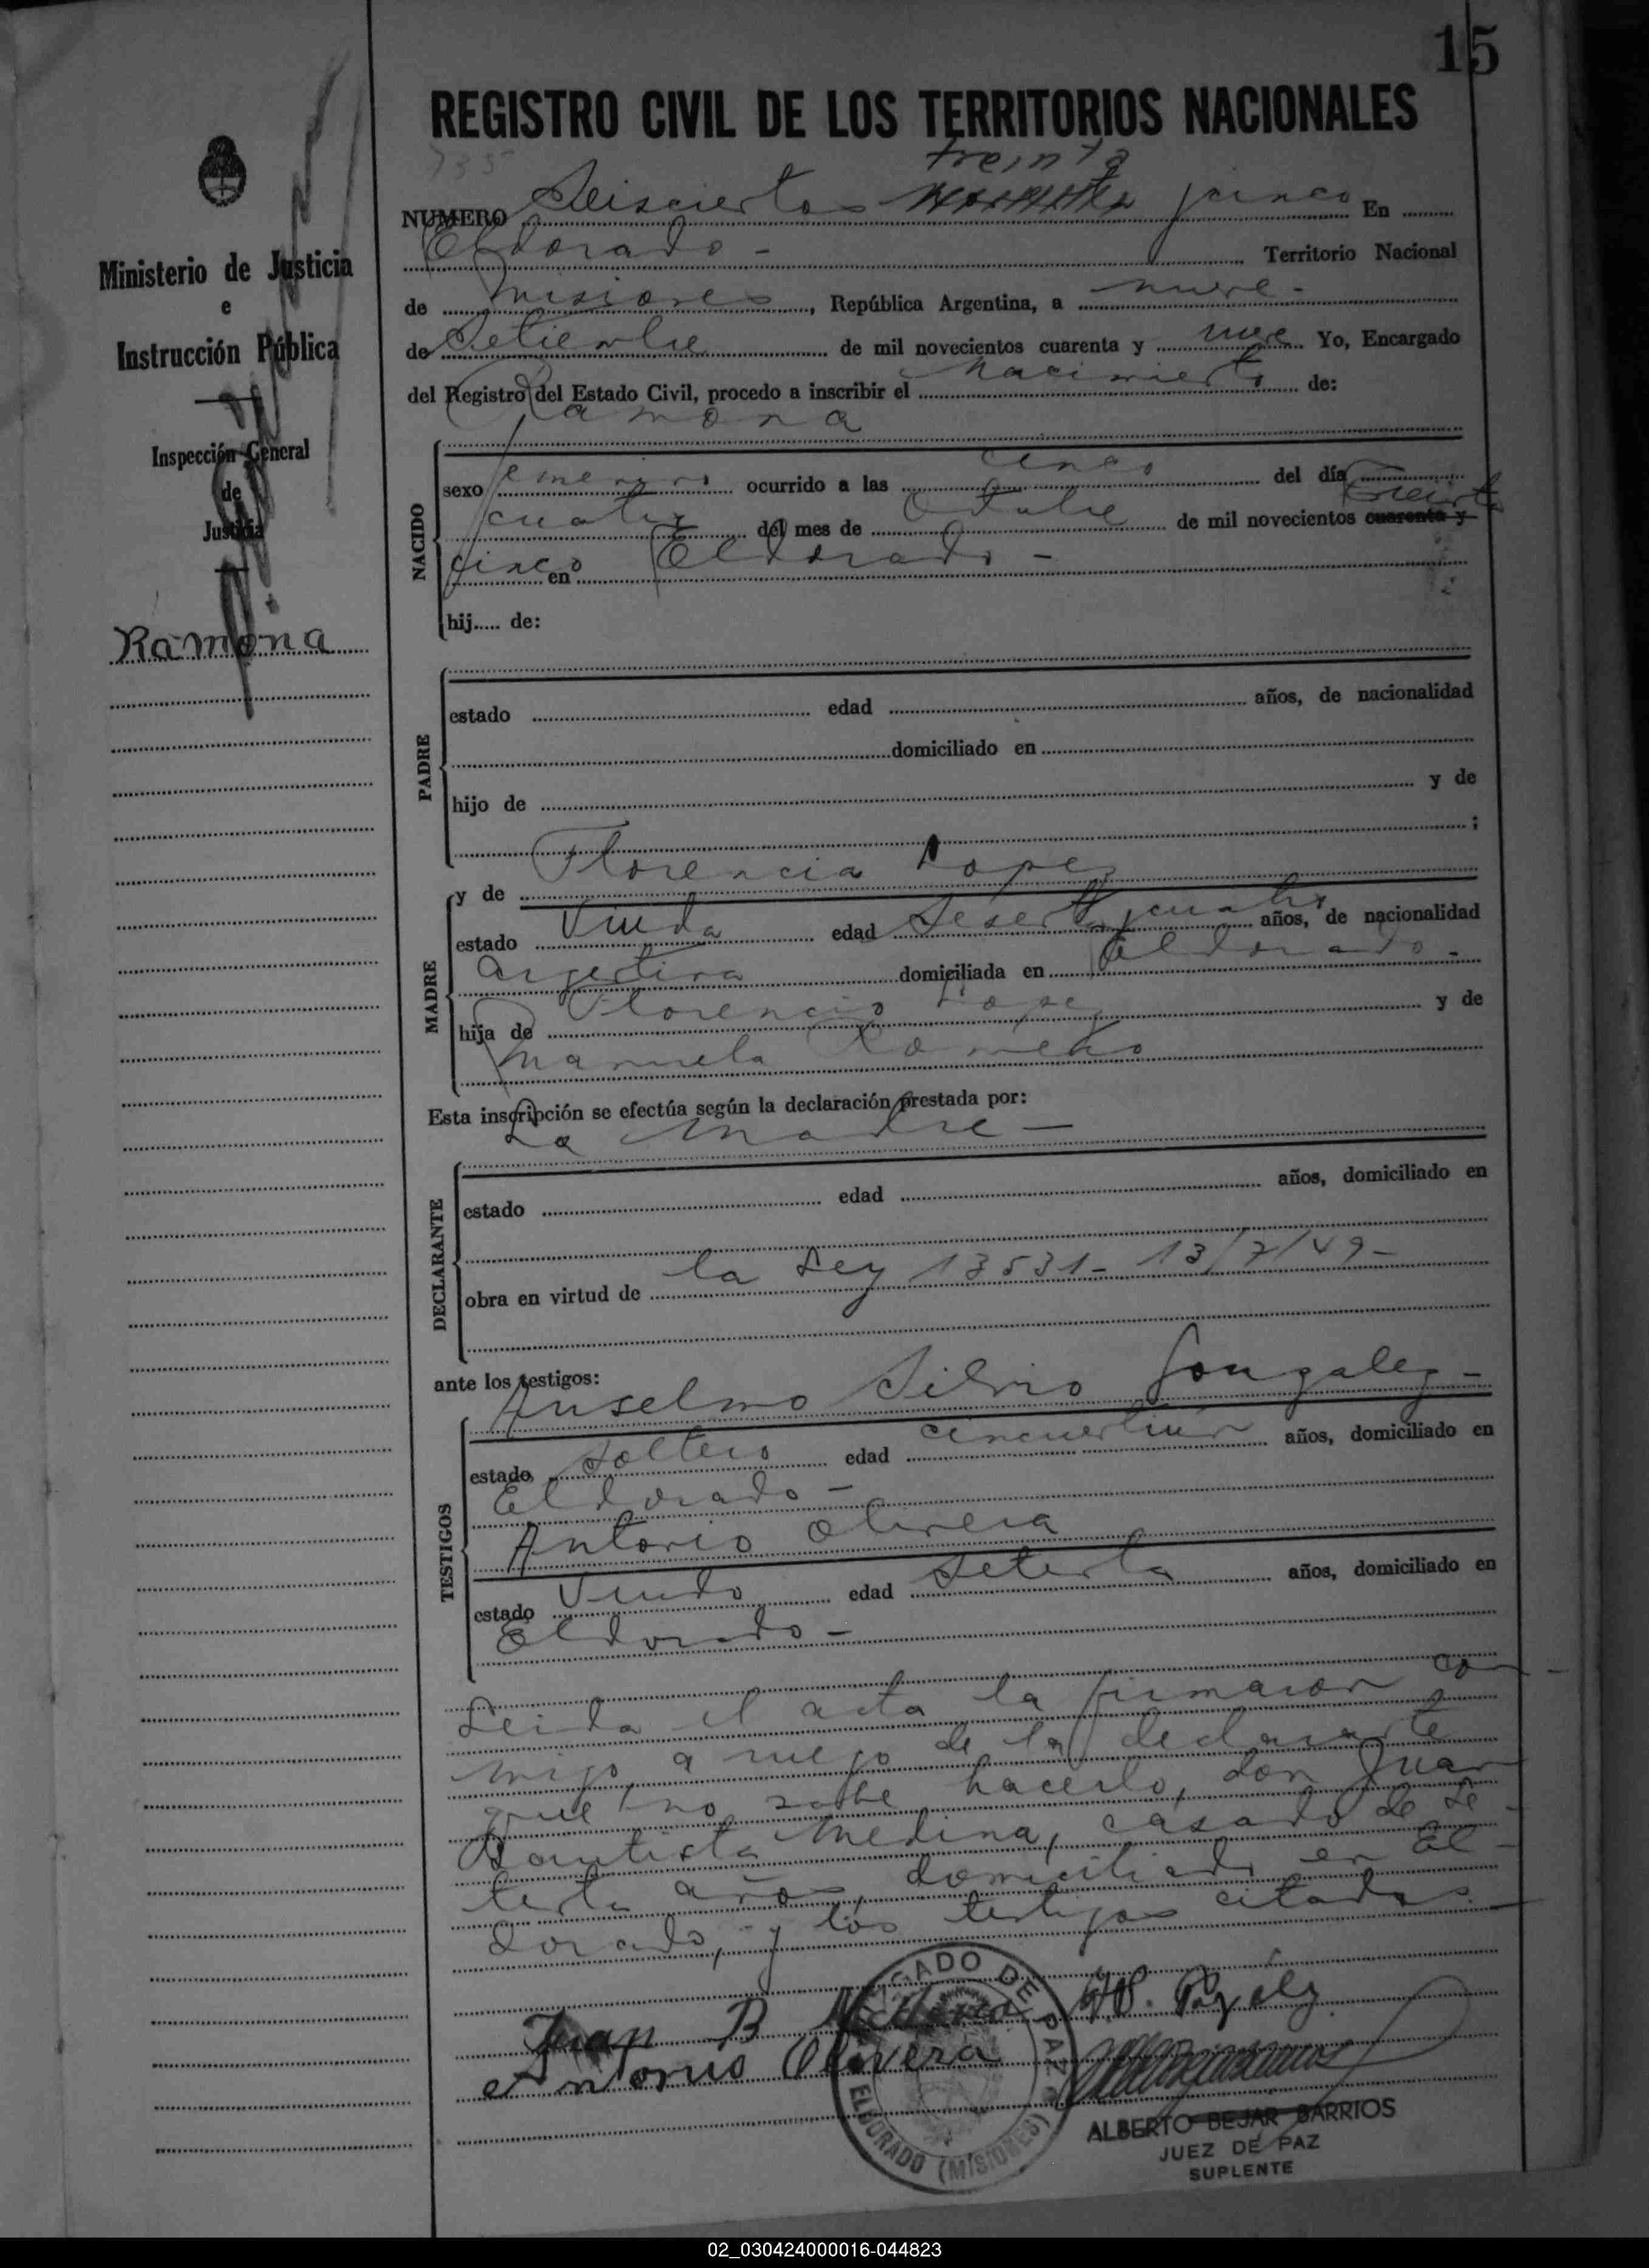 15
REGISTRO CIVIL DE LOS TERRITORIOS NACIONALES
735
treinta
NUMERO Seiscientos y cinco En
Eldorado - Territorio Nacional
de Misiones, República Argentina, a nueve -
de Setiembre de mil novecientos cuarenta y nueve Yo, Encargado
del Registro del Estado Civil, procedo a inscribir el nacimiento de:
Ramona
Ministerio de Justicia
e
Instrucción Pública
Inspección General
de
Justicia
Ramona
NACIDO
sexo femenino ocurrido a las cinco del día
cuatro del mes de Octubre de mil novecientos cuarenta y treinta
y cinco en Eldorado -
hij..... de:
PADRE
estado edad años, de nacionalidad
domiciliado en
hijo de y de
;
MADRE
y de Florencia Lopez
estado Viuda edad Sesenta y cuatro años, de nacionalidad
Argentina domiciliada en Eldorado -
hija de Florencio Lopez y de
Manuela Romero
Esta inscripción se efectúa según la declaración prestada por:
La Madre -
DECLARANTE
estado edad años, domiciliado en
obra en virtud de la Ley 13531 - 13/7/49 -
ante los testigos:
Anselmo Silvio Gonzalez -
TESTIGOS
estado Soltero edad cincuentiun años, domiciliado en
Eldorado -
Antonio Olivera
estado Viudo edad Setenta años, domiciliado en
Eldorado -
Leida el acta la firmaron con-
migo, a ruego de la declarante
que no sabe hacerlo, don Juan
Bautista Medina, casado de se-
tenta años, domiciliado en El-
dorado, y los testigos citados.
Juan B Medina
Antonio Olivera
JUZGADO DE PAZ
ELDORADO (MISIONES)
ALBERTO BEJAR BARRIOS
JUEZ DE PAZ
SUPLENTE
02_030424000016-044823